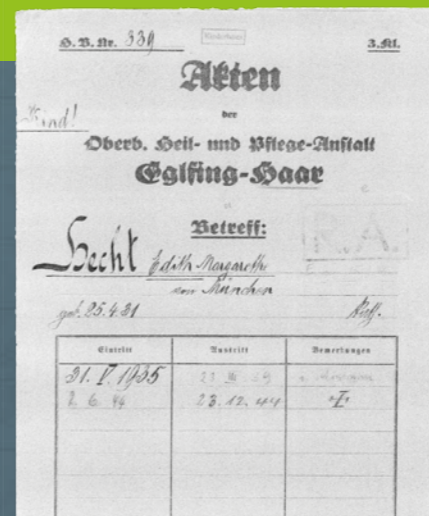 H. B. Nr. 339
Kinderhaus
3. Kl.
Akten
der
Kind!
Oberb. Heil- und Pflege-Anstalt
Eglfing-Haar
Betreff:
Hecht Edith Margarethe
von München
geb. 25.4.31
Eintritt Austritt Bemerkungen
31. V. 1935
2 6. 44 23.12.44